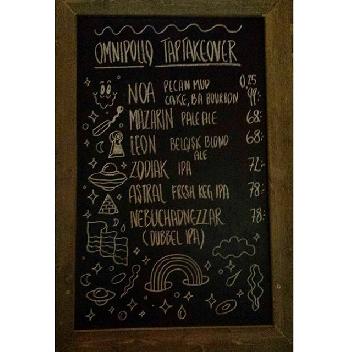 OMNIPOLLO TAPTAKEOVER
NOA PECAN MUD 0,25
CAKE, BA BOURBON 99:-
MAZARIN PALE ALE 68:-
LEON BELGISK BLOND 68:-
ALE
ZODIAK IPA 72:-
ASTRAL FRESH KEG IPA 78:-
NEBUCHADNEZZAR 78:-
(DUBBEL IPA)